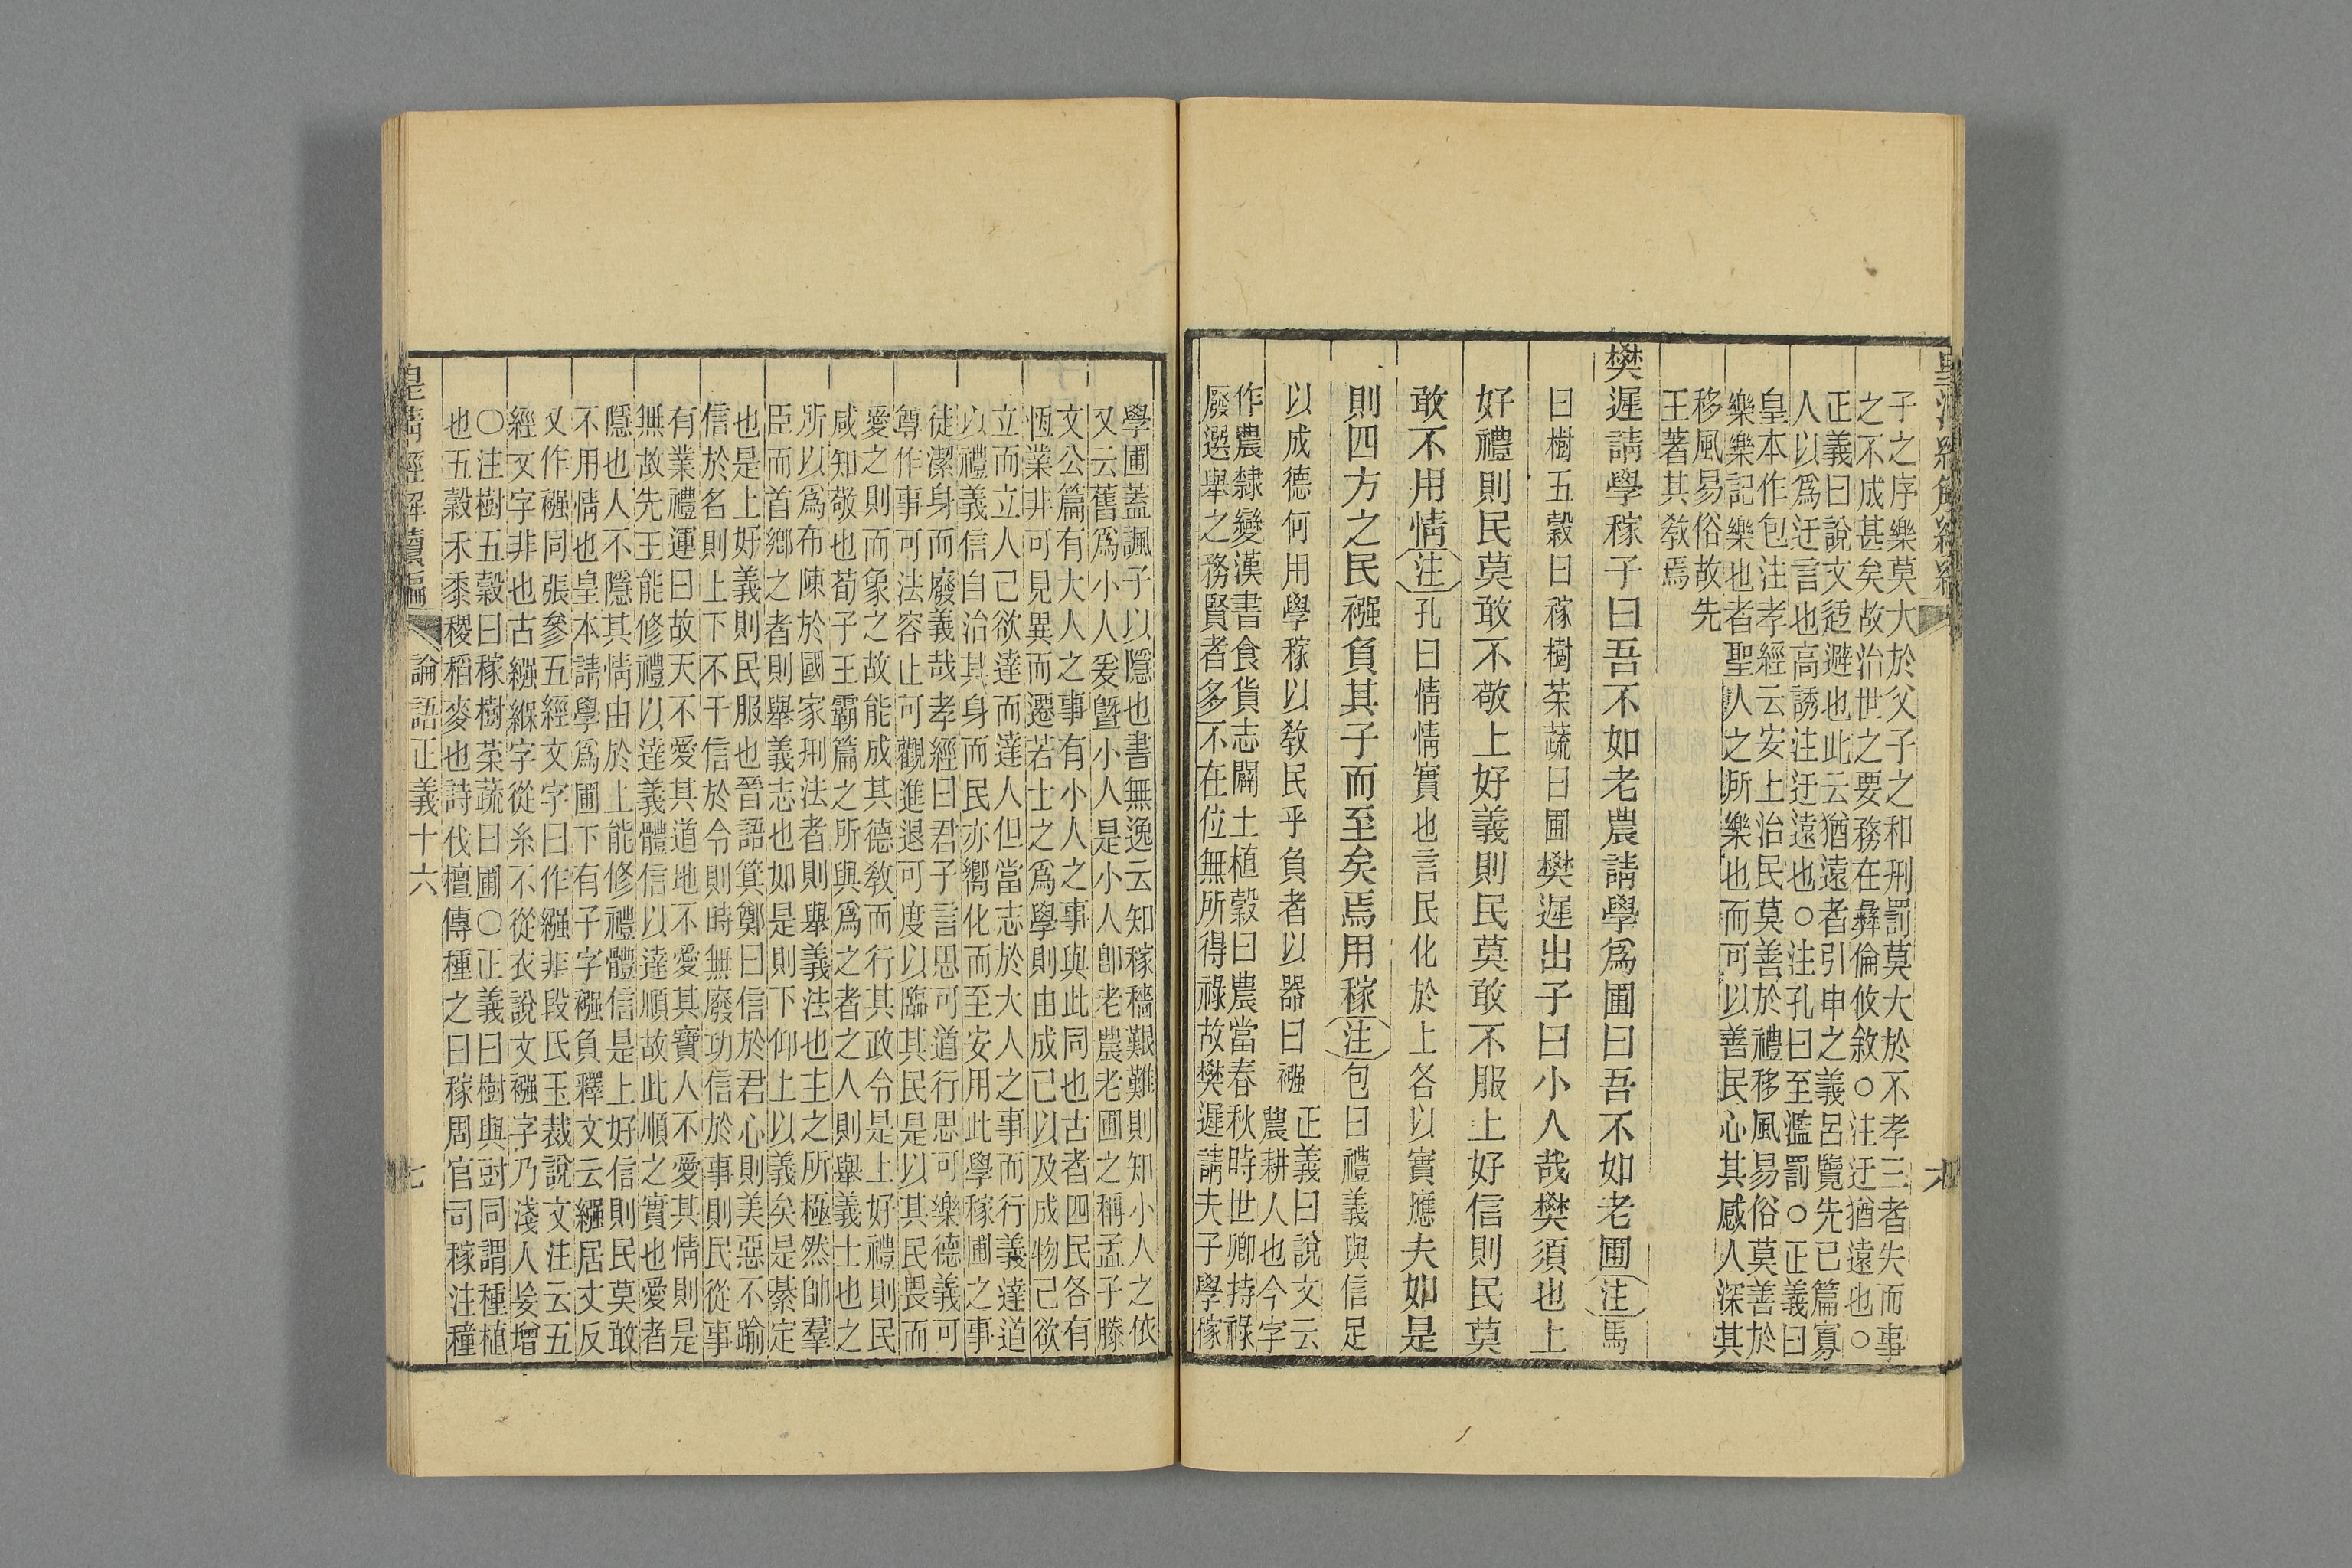 皇清經解續編
六
子之序樂莫大於父子之和刑罰莫大於不孝三者失而事
之不成甚矣故治世之要務在彝倫攸敘○注迂猶遠也○
正義曰說文迃避也此云猶遠者引申之義呂覽先已篇寡
人以爲迂言也高誘注迂遠也○注孔曰至濫罰○正義曰
皇本作包注孝經云安上治民莫善於禮移風易俗莫善於
樂樂記樂也者聖人之所樂也而可以善民心其感人深其
移風易俗故先
王著其教焉
樊遲請學稼子曰吾不如老農請學爲圃曰吾不如老圃注馬
曰樹五穀曰稼樹菜蔬曰圃樊遲出子曰小人哉樊須也上
好禮則民莫敢不敬上好義則民莫敢不服上好信則民莫
敢不用情注孔曰情情實也言民化於上各以實應夫如是
則四方之民襁負其子而至矣焉用稼注包曰禮義與信足
以成德何用學稼以教民乎負者以器曰襁
正義曰說文云
農耕人也今字
作農隸變漢書食貨志闢土植穀曰農當春秋時世卿持祿
廢選舉之務賢者多不在位無所得祿故樊遲請夫子學稼
學圃蓋諷子以隱也書無逸云知稼穡艱難則知小人之依
又云舊爲小人爰曁小人是小人卽老農老圃之稱孟子滕
文公篇有大人之事有小人之事與此同也古者四民各有
恆業非可見異而遷若士之爲學則由成己以及成物己欲
立而立人己欲達而達人但當志於大人之事而行義達道
以禮義信自治其身而民亦嚮化而至安用此學稼圃之事
徒潔身而廢義哉孝經曰君子言思可道行思可樂德義可
尊作事可法容止可觀進退可度以臨其民是以其民畏而
愛之則而象之故能成其德教而行其政令是上好禮則民
咸知敬也荀子王霸篇之所與爲之者之人則舉義士也之
所以爲布陳於國家刑法者則舉義法也主之所極然帥羣
臣而首鄉之者則舉義志也如是則下仰上以義矣是綦定
也是上好義則民服也晉語箕鄭曰信於君心則美惡不踰
信於名則上下不干信於令則時無廢功信於事則民從事
有業禮運曰故天不愛其道地不愛其寶人不愛其情則是
無故先王能修禮以達義體信以達順故此順之實也愛者
隱也人不隱其情由於上能修禮體信是上好信則民莫敢
不用情也皇本請學爲圃下有子字襁負釋文云繦居丈反
又作襁同張參五經文字曰作繦非段氏玉裁說文注云五
經文字非也古繦緥字從糸不從衣說文襁字乃淺人妄增
○注樹五穀曰稼樹菜蔬曰圃○正義曰樹與尌同謂種植
也五穀禾黍稷稻麥也詩伐檀傳種之曰稼周官司稼注種
皇淸經解續編
論語正義十六
七